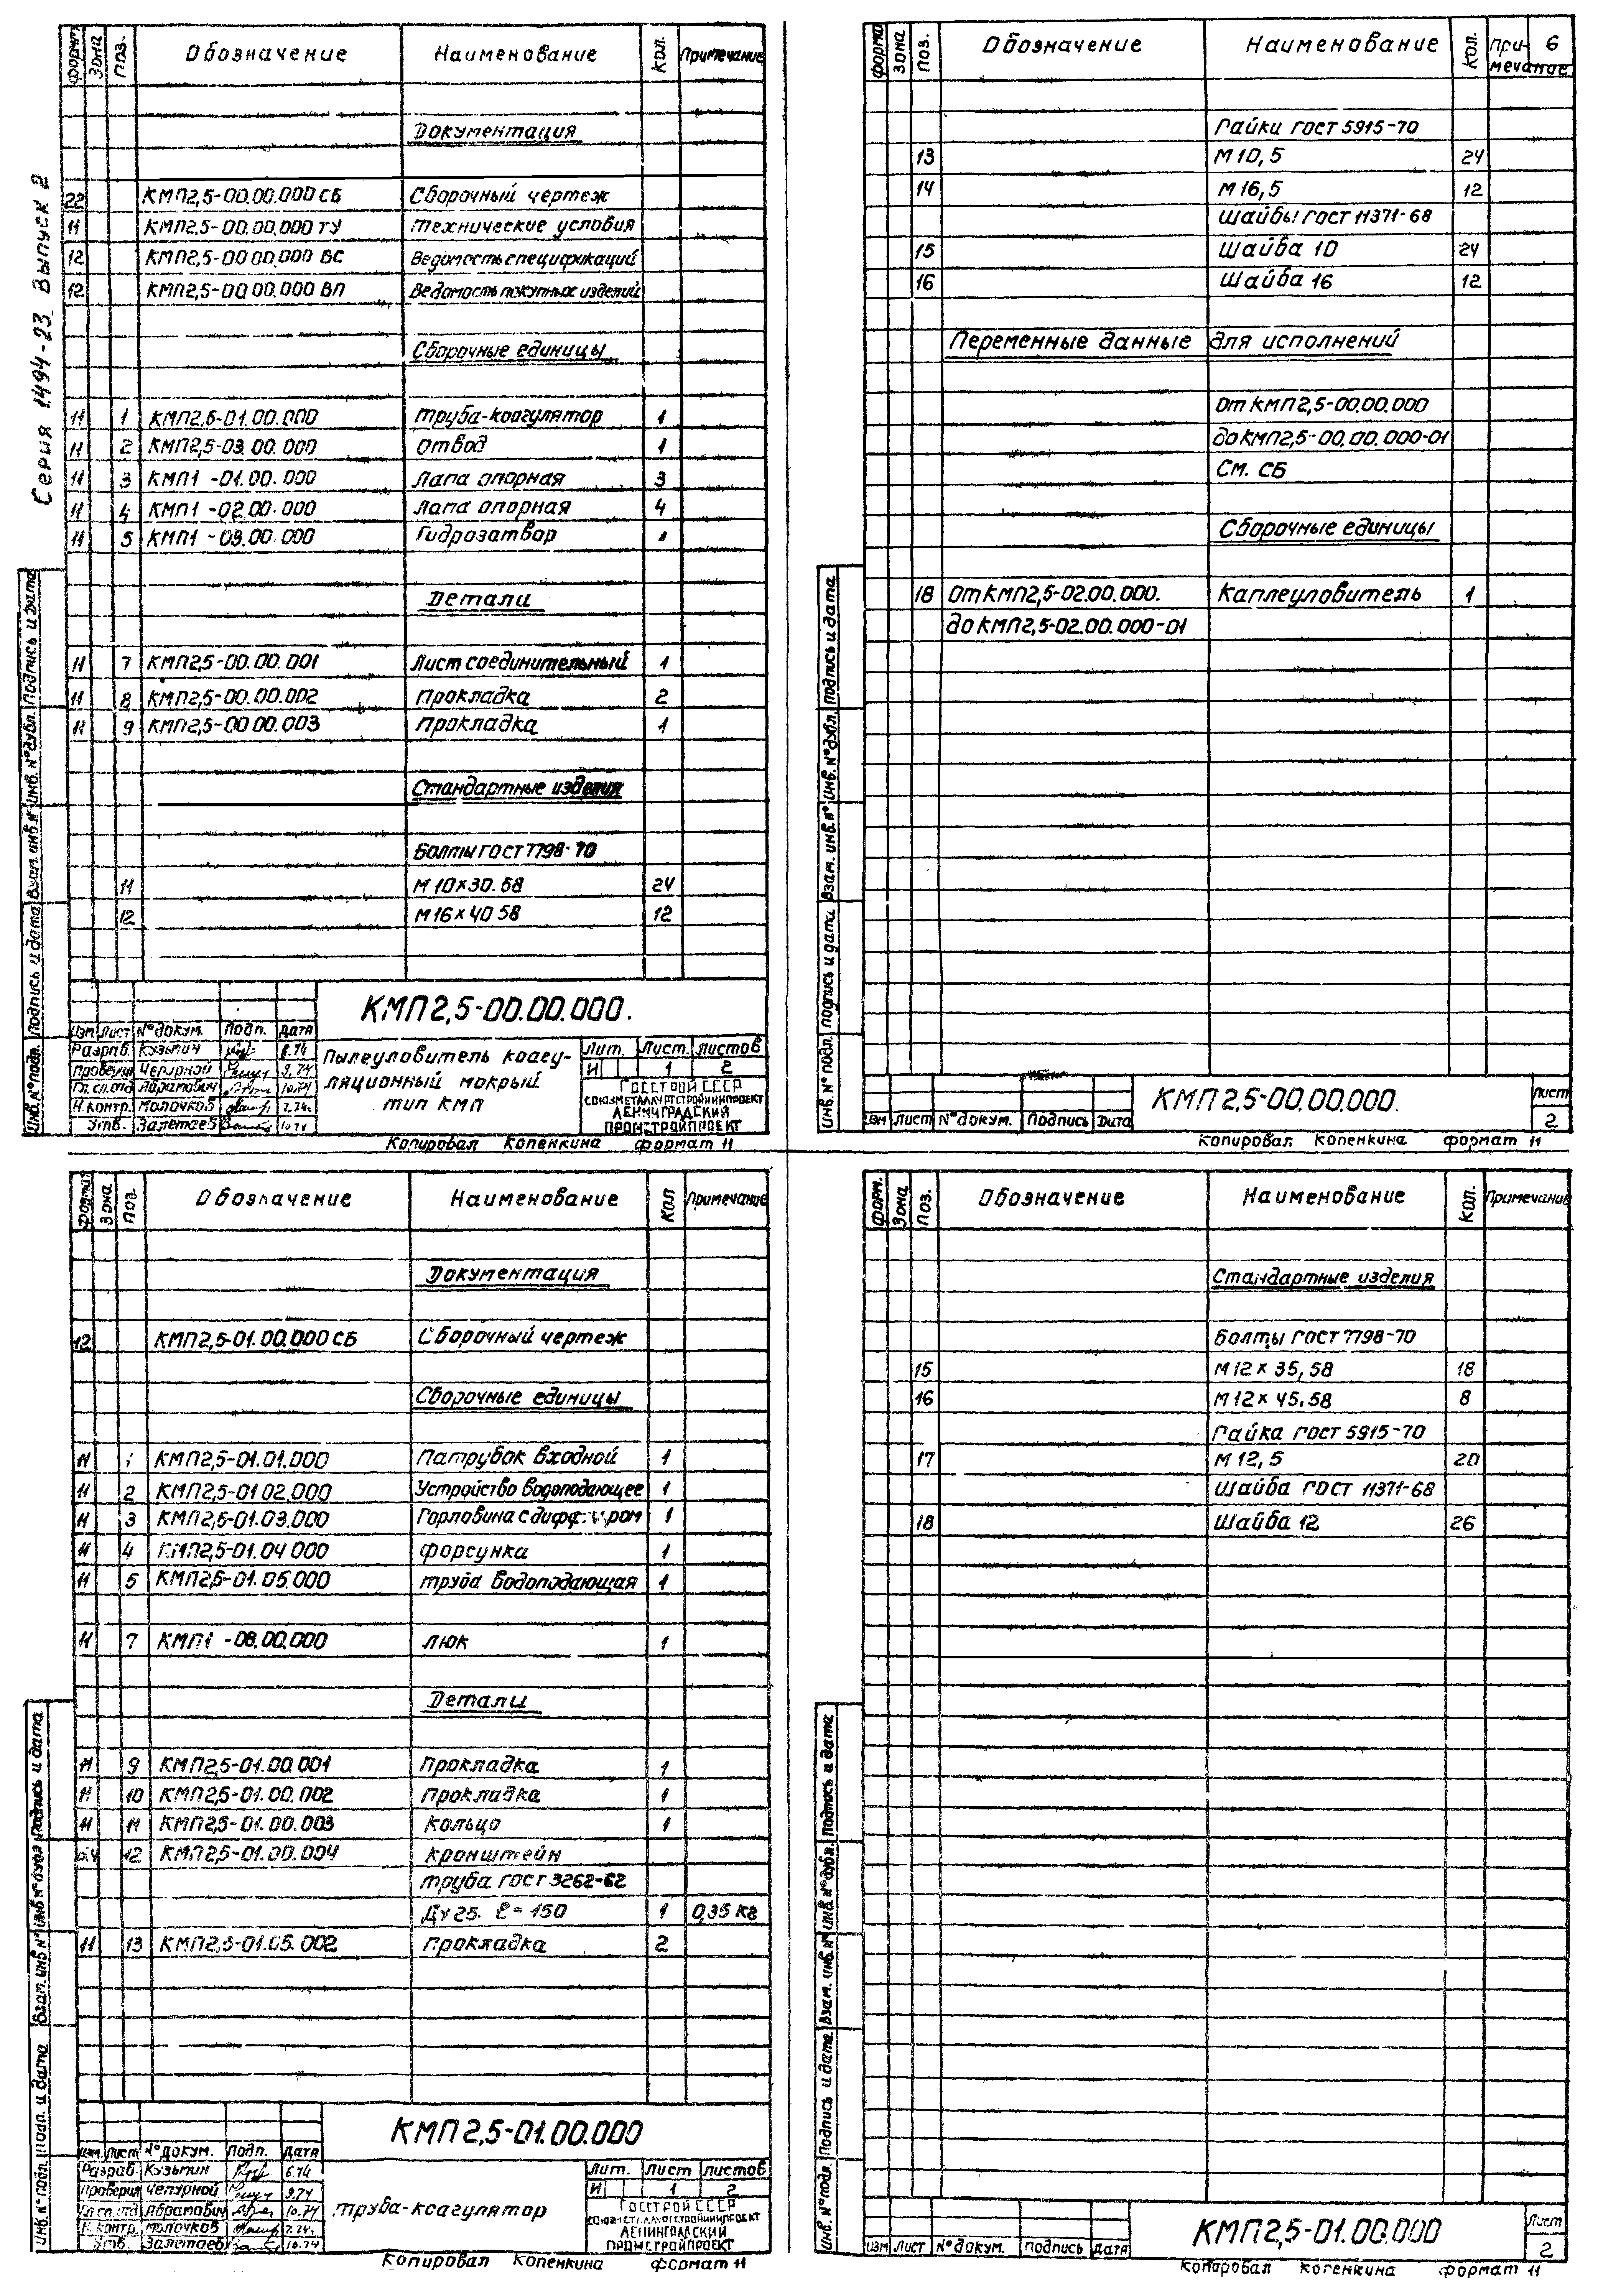 Серия 1.494-23 Выпуск 2
формат Зона Поз. Обозначение Наименование Кол. Примечание
Документация
22 КМП2,5-00.00.000 СБ Сборочный чертеж
11 КМП2,5-00.00.000 ТУ Технические условия
12 КМП2,5-00 00.000 ВС Ведомость спецификаций
12 КМП2,5-00 00.000 ВП Ведомость покупных изделий
Сборочные единицы
11 1 КМП2,5-01.00.000 Труба-коагулятор 1
11 2 КМП2,5-03.00.000 Отвод 1
11 3 КМП1 -01.00.000 Лапа опорная 3
11 4 КМП1 -02.00.000 Лапа опорная 4
11 5 КМП1 -03.00.000 Гидрозатвор 1
Детали
11 7 КМП2,5-00.00.001 Лист соединительный 1
11 8 КМП2,5-00.00.002 Прокладка 2
11 9 КМП2,5-00 00.003 Прокладка 1
Стандартные изделия
Болты ГОСТ 7798-70
11 М10×30.58 24
12 М16×40 58 12
КМП2,5-00.00.000.
Изм Лист №докум. Подп. Дата
Разраб. Кузьмин 8.74
Проверил Чепурной 9.74
Гл.сп.отд Абрамович 10.74
Н.контр. Молочков 7.74.
Утв. Залетаев 10.74
Пылеуловитель коагу-
ляционный мокрый
тип КМП
Лит. Лист. Листов
И 1 2
ГОССТРОЙ СССР
СОЮЗМЕТАЛЛУРГСТРОЙНИИПРОЕКТ
ЛЕНИНГРАДСКИЙ
ПРОМСТРОЙПРОЕКТ
Копировал Копенкина формат 11
Инв. №подл. Подпись и дата Взам. инв.№ Инв. №дубл. Подпись и дата
форма Зона Поз. Обозначение Наименование Кол. При-
мечание
6
Гайки ГОСТ 5915-70
13 М10,5 24
14 М16,5 12
Шайбы ГОСТ 11371-68
15 Шайба 10 24
16 Шайба 16 12
Переменные данные для исполнений
От КМП2,5-00.00.000
до КМП2,5-00.00.000-01
См. СБ
Сборочные единицы
18 От КМП2,5-02.00.000. Каплеуловитель 1
до КМП2,5-02.00.000-01
Инв. № подл. Подпись и дата Взам. инв.№ Инв. №дубл. Подпись и дата
Изм Лист №докум. Подпись Дата
КМП2,5-00.00.000.
Лист
2
Копировал Копенкина формат 11
формат Зона Поз. Обозначение Наименование Кол Примечание
Документация
12 КМП2,5-01.00.000 СБ Сборочный чертеж
Сборочные единицы
11 1 КМП2,5-01.01.000 Патрубок входной 1
11 2 КМП2,5-01 02.000 Устройство водоподающее 1
11 3 КМП2,5-01.03.000 Горловина с 1
11 4 КМП2,5-01.04 000 форсунка 1
11 5 КМП2,5-01.05.000 Труба водоподающая 1
11 7 КМП1 -08.00.000 Люк 1
Детали
11 9 КМП2,5-01.00.001 Прокладка 1
11 10 КМП2,5-01.00.002 Прокладка 1
11 11 КМП2,5-01.00.003 Кольцо 1
б.ч 12 КМП2,5-01.00.004 Кронштейн
Труба ГОСТ 3262-62
Ду 25. ℓ=150 1 0,35 кг
11 13 КМП2,5-01.05.002 Прокладка 2
КМП2,5-01.00.000
Изм. Лист №докум. Подп. Дата
Разраб. Кузьмин 6.74
Проверил Чепурной 9.74
Гл.сп.отд Абрамович 10.74
Н.контр. Молочков 7.74.
Утв. Залетаев 10.74
Труба-коагулятор
Лит. Лист Листов
И 1 2
ГОССТРОЙ СССР
СОЮЗМЕТАЛЛУРГСТРОЙНИИПРОЕКТ
ЛЕНИНГРАДСКИЙ
ПРОМСТРОЙПРОЕКТ
Копировал Копенкина формат 11
Инв. №подл. Подп. и дата Взам. инв №. Инв №дубл Подпись и дата
форм. Зона Поз. Обозначение Наименование Кол. Примечание
Стандартные изделия
Болты ГОСТ 7798-70
15 М12×35,58 18
16 М12×45.58 8
Гайка ГОСТ 5915-70
17 М12,5 20
Шайба ГОСТ 11371-68
18 Шайба 12 26
Инв. №подл. Подпись и дата Взам. инв. № Инв. №дубл. Подпись и дата
Изм Лист №докум. Подпись Дата
КМП2,5-01.00.000
Лист
2
Копировал Когенкина формат 11